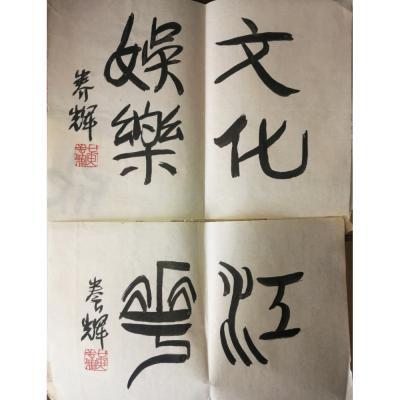 文化
娛樂
春輝
江
華
春輝